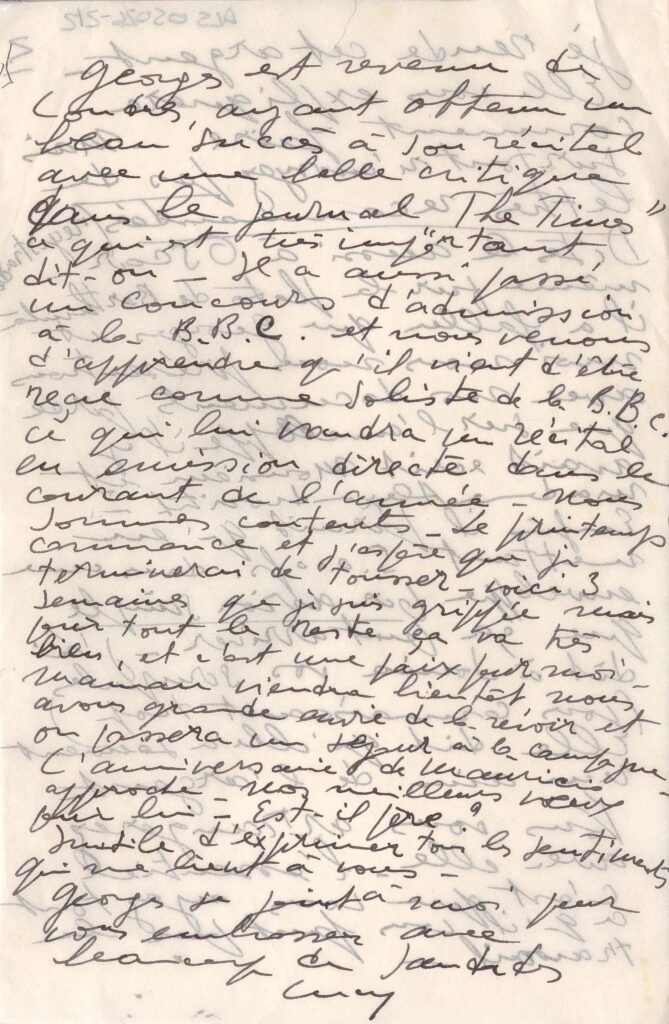 Georges est revenu de
Londres, ayant obtenu un
beau succès à son récital
avec une belle critique
dans le journal "The Times"
ce qui est très important,
dit-on - Il a aussi passé
un concours d'admission
à la B.B.C. et nous venons
d'apprendre qu'il vient d'être
reçu comme soliste de la B.B.C.
ce qui lui vaudra un récital
en emission directe dans le
courant de l'année - Nous
sommes contents - Le printemps
commence et j'espère que je
terminerai de tousser - voici 3
semaines que je suis grippée mais
pour tout le reste ça va très
bien, et c'est une paix pour moi -
maman viendra bientôt nous
avons grande envie de la revoir et
on passera un séjour à la campagne -
L'anniversaire de Mauricio
approche - nos meilleurs voeux
pour lui - Est-il père ?
Inutile d'éxprimer tous les sentiments
qui me lient à vous -
Georges se joint à moi pour
vous embrasser avec
beaucoup de Saudades